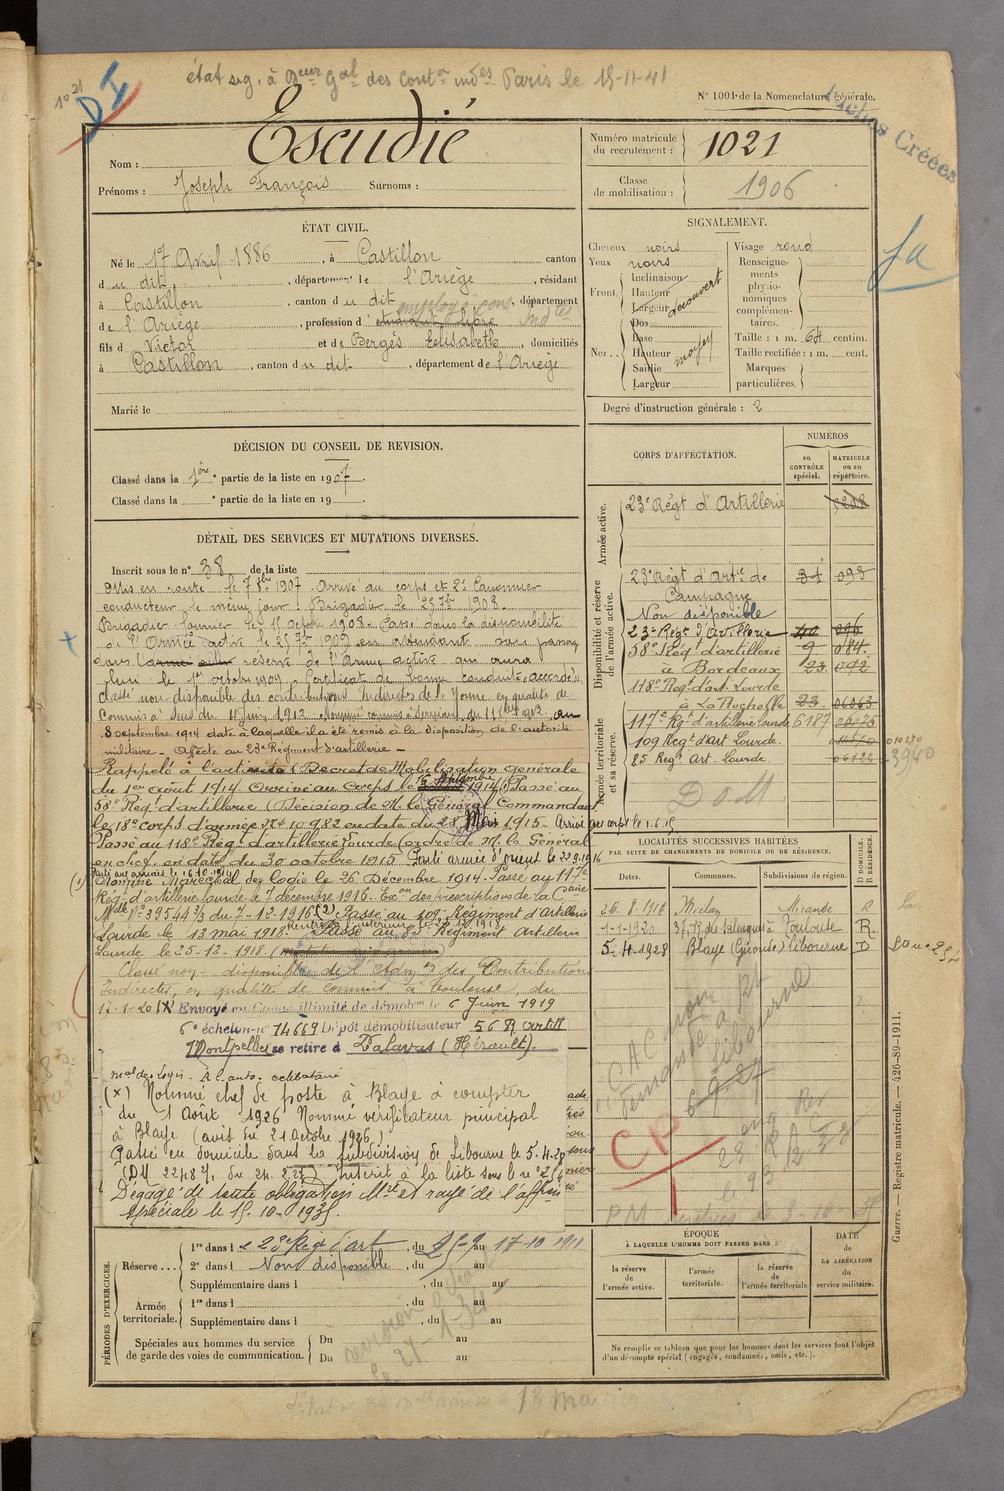 état sig. à Deur Gal des Contons indes Paris le 15-11-41
1021
DI
N° 1001 de la Nomenclature générale.
Fiches Créées
Nom : Escudié
Prénoms : Joseph François Surnoms :
Numéro matricule du recrutement : 1021
Classe de mobilisation : 1906
ÉTAT CIVIL.
Né le 17 Avril 1886, à Castillon canton
du dit, département de l'Ariège, résidant
à Castillon, canton du dit, département
de l'Ariège, profession d' employé cons indtes
fils de Victor et de Bergès Elisabeth, domiciliés
à Castillon, canton du dit, département de l'Ariège
Marié le
SIGNALEMENT.
Cheveux noirs
Yeux noirs
Front Inclinaison
Hauteur
Largeur
découvert
Nez Dos
Base
Hauteur
Saillie
Largeur
moyen
Visage rond
Renseignements physionomiques complémentaires.
Taille : 1 m. 64 centim.
Taille rectifiée : 1 m. cent.
Marques particulières.
Degré d'instruction générale : 2
DÉCISION DU CONSEIL DE REVISION.
Classé dans la 1ère partie de la liste en 1907.
Classé dans la e partie de la liste en 19
DÉTAIL DES SERVICES ET MUTATIONS DIVERSES.
Inscrit sous le n° 38 de la liste
Mis en route le 7 8bre 1907. Arrivé au corps et 2e Canonnier
conducteur le même jour. Brigadier le 25 7bre 1908.
Brigadier fourrier le 15 octobre 1908. Passé dans la disponibilité
de l'Armée active le 25 7bre 1909 en attendant son passage
dans la réserve de l'Armée active qui aura
lieu le 1er octobre 1909. Certificat de bonne conduite accordé.
Classé non disponible des contributions Indirectes de l'Yonne en qualité de
Commis à Sens du 4 Juin 1912. Nommé commis à
8 septembre 1914 date à laquelle il a été remis à la disposition de l'autorité
militaire - Affecté au 23e Régiment d'artillerie -
Rappelé à l'activité (Décret de Mobilisation Générale
du 1er août 1914. Arrivé au Corps le 15 septembre 1914 (1) Passé au
58e Rég. d'artillerie (Décision de M. le Général Commandant
le 18e Corps d'armée N° 10982 en date du 28 Mai 1915 - Arrivé au corps le 1.6.15
Passé au 118e Régt d'artillerie Lourde (ordre de M. le Général
en chef en date du 30 octobre 1915 Parti armée d'orient le 22.9.1916
Parti aux armées le 16.10.1914
(1) Nommé Maréchal des logis le 26 Décembre 1914. Passé au 117e
Rég. d'artillerie lourde le 7 décembre 1916. Eon des prescriptions de la Caire
Melle N° 39544 3/3 du 7-12-1916 (2) Passé au 109e Régiment d'Artillerie
Lourde le 13 mai 1918 Passé au 85e Régiment Artillerie
Lourde le 25-12-1918
Classé non-disponible de l'Admon des Contributions
Indirectes, en qualité de commis à Toulouse, du
12-1-20 (X) Envoyé en Congé illimité de démobon le 6 Juin 1919
6e échelon n° 14669 Dépôt démobilisateur 56 R. Artill
Montpellier se retire à Palavas (Hérault).
Mal des Logis. célibataire
(X) Nommé chef de poste à Blaye à compter
du 1 Août 1926 Nommé vérificateur principal
à Blaye (avis du 21 Octobre 1926.
Passé en domicile dans la subdivision de Libourne le 5-4-28
Dégagé de toute obligation Mre et rayé de l'affon
spéciale le 15-10-1935.
CORPS D'AFFECTATION.
NUMÉROS
au CONTRÔLE spécial.
MATRICULE ou au répertoire.
Armée active.
23e Régt d'Artillerie
Disponibilité et réserve de l'armée active.
23e Régt d'Artie de Campagne 31 093
Non disponible
23e Régt d'Artillerie
58e Régt d'artillerie à Bordeaux 9 084
23 092
118e Regt d'art Lourde à La Rochelle 23
Armée territoriale et sa réserve.
117e Régt d'artillerie lourde 6187
109 Regt d'art Lourde.
85 Regt Art. lourde.
010570
3940
LOCALITÉS SUCCESSIVES HABITÉES
PAR SUITE DE CHANGEMENTS DE DOMICILE OU DE RÉSIDENCE.
Dates. Communes. Subdivisions de région. D DOMICILE. R RÉSIDENCE.
26.8.1914 Mielan Mirande R
1-1-1920 Toulouse R
5.4.1928 Blaye (Gironde) Libourne D
CAC
demandé à
Libourne
6-9-27
CP
Guerre. - Registre matricule. - 426-89-1911.
PÉRIODES D'EXERCICES.
Réserve ... 1re dans le 23e Reg d'art, du au 17-10 1911
2e dans l Non disponible, du au
Supplémentaire dans l , du au
Armée territoriale. 1re dans l , du au
Supplémentaire dans l , du au
Spéciales aux hommes du service de garde des voies de communication. Du au
Du au
ÉPOQUE
À LAQUELLE L'HOMME DOIT PASSER DANS :
la réserve de l'armée active.
l'armée territoriale.
la réserve de l'armée territoriale
DATE de LA LIBÉRATION du service militaire.
Ne remplir ce tableau que pour les hommes dont les services font l'objet
d'un décompte spécial (engagés, condamnés, omis, etc.).